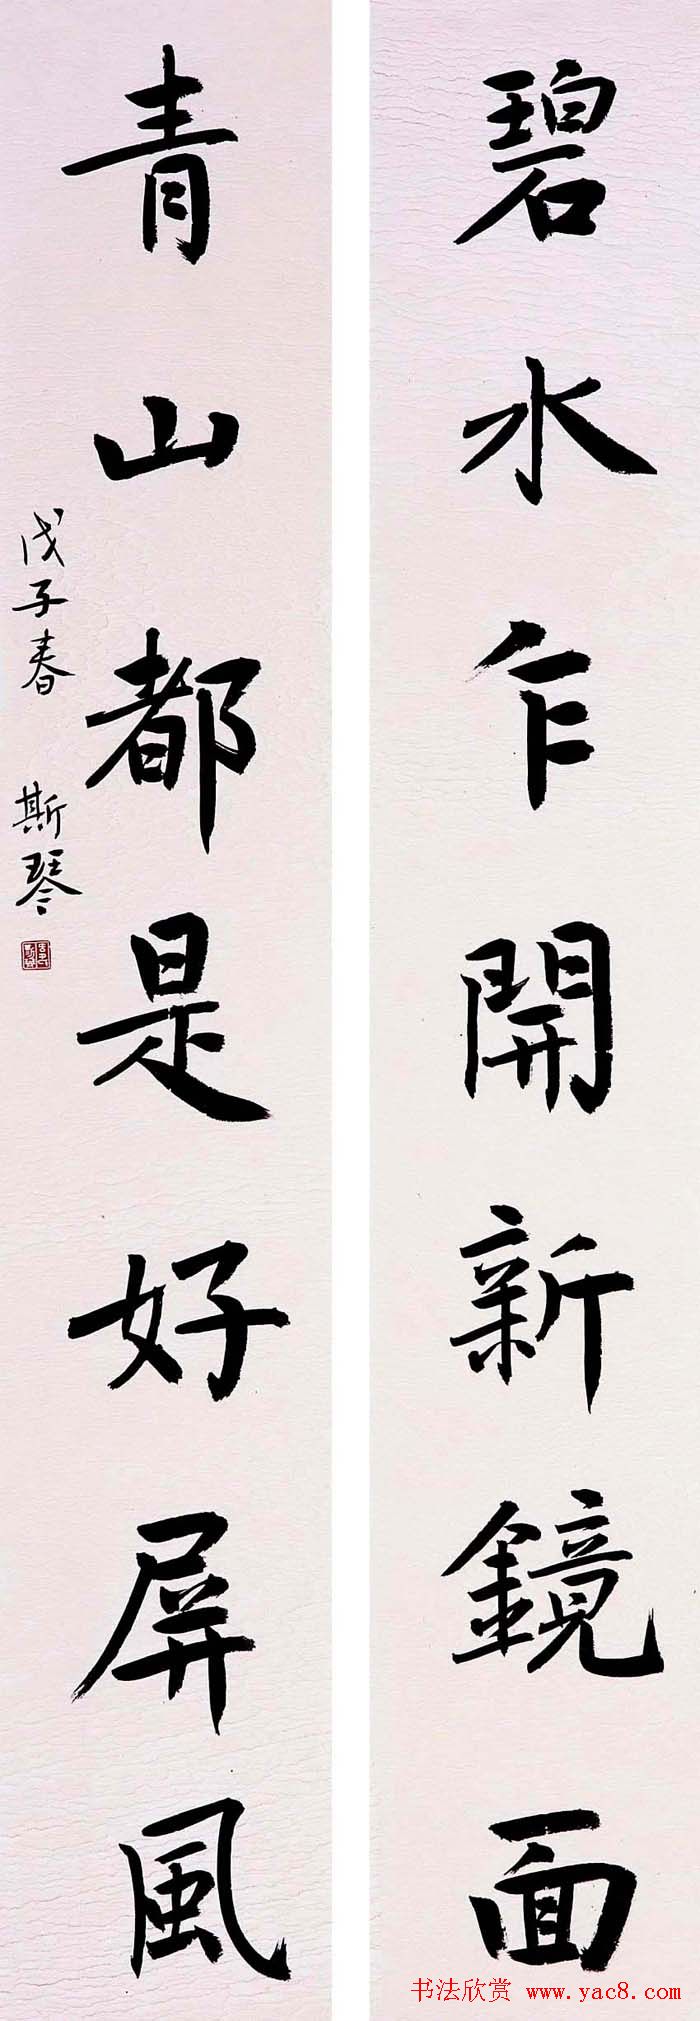 碧水乍開新鏡面
青山都是好屏風
戊子春 斯琴
书法欣赏 www.yac8.com